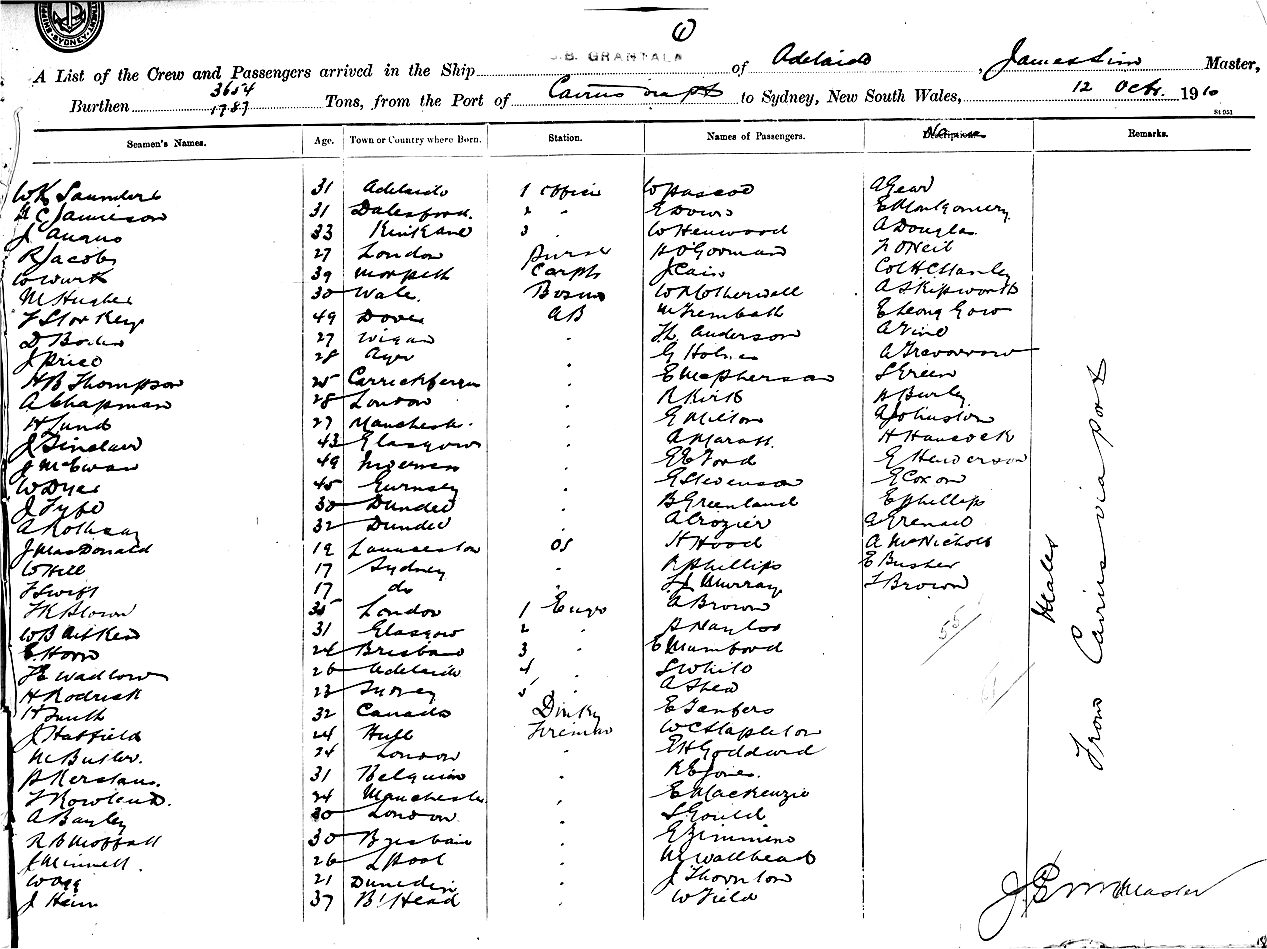 SYDNEY
1
S.S. GRANTALA
A List of the Crew and Passengers arrived in the Ship of Adelaide, James Sim Master,
3654
Burthen 1787 Tons, from the Port of Cairns via pts to Sydney, New South Wales, 12 Octr. 1910
St 951
Seamen's Names. Age. Town or Country where Born. Station. Names of Passengers. Remarks.
W K Saunders 31 Adelaide 1 Officer W Pascoe A Gear
G C Jamieson 31 Dalesford. 2 " E Down E Montgomery
J Angus 33 3 " W Henwood A Douglas
R Jacobs 27 London Purser H O'Gorman O'Neil
W Wurk 39 Morpeth Carptr J Cain Col H C Stanley
M Hughes 30 Wales Bosun W R Otherwell A Skipworth
F Storkey 49 Dover AB M Trembath E Leong Gow
D 27 Wigan " Anderson A Vine
J Price 28 Ayr " G Holmes A
H B Thompson 25 Carrickfergus " E McPherson S Green
A Chapman 28 London " R Kirk Burley
H Lund 27 Manchester " E Milton A Johnston
J Sinclair 43 Glasgow " A H Hancock
J McEwan 49 Inverness " E E Ford E Henderson
W Dyer 45 Gurnsey " E Stevenson E Coxon
J Fyfe 30 Dundee " B Greenland E Phillips
A Rothsay 32 Dundee " A Crozier
J MacDonald 19 Launceston OS H Hood A McNichols
W Hill 17 Sydney " R Phillips E Busher
F Swift 17 do " Murray F Brown
F K Stown 35 London 1 Engr A Brown
W B Aitken 31 Glasgow 2 " A Naylor
E Horn 24 Brisbane 3 " E Mumford
F E Wadlow 26 Adelaide 4 " S White
H Rodrick 23 5 " A Shea
H Smith 32 Canada Dinky E Sanders
J Hatfield 24 Hull Fireman W C Stapleton
M Butler. 24 London " E H Goddard
31 Belguim " R E Jones.
F Rowland. 24 Manchester " E Mackenzie
A Bayley 30 London " S Gould
R B Moffatt 30 Brisbain " E Zimmine
J Minnell. 26 L'Pool " M Wallhead
W Ogg 21 Dunedin " J Thornton
J Hein 37 B'Head " W Field
55
Meales
From Cairns via ports
Master